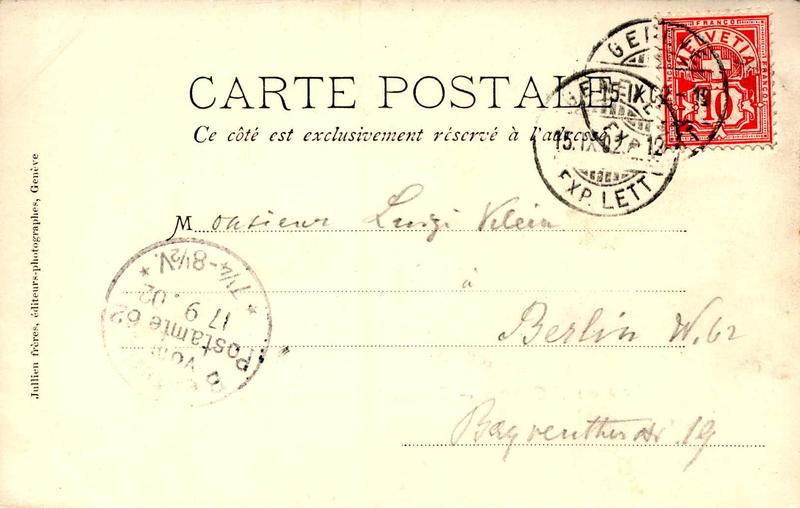 CARTE POSTALE
Ce côté est exclusivement réservé à l'adresse
FRANCO
HELVETIA
FRANCO
10
15.IX.02. 12
EXP. LETT
Monsieur Luigi Klein
à
Berlin W. 62
Bayreutherstr. 19
Postamte 62
17 9 . 02
* 7¼-8½V. *
Jullien frères, éditeurs-photographes, Genève